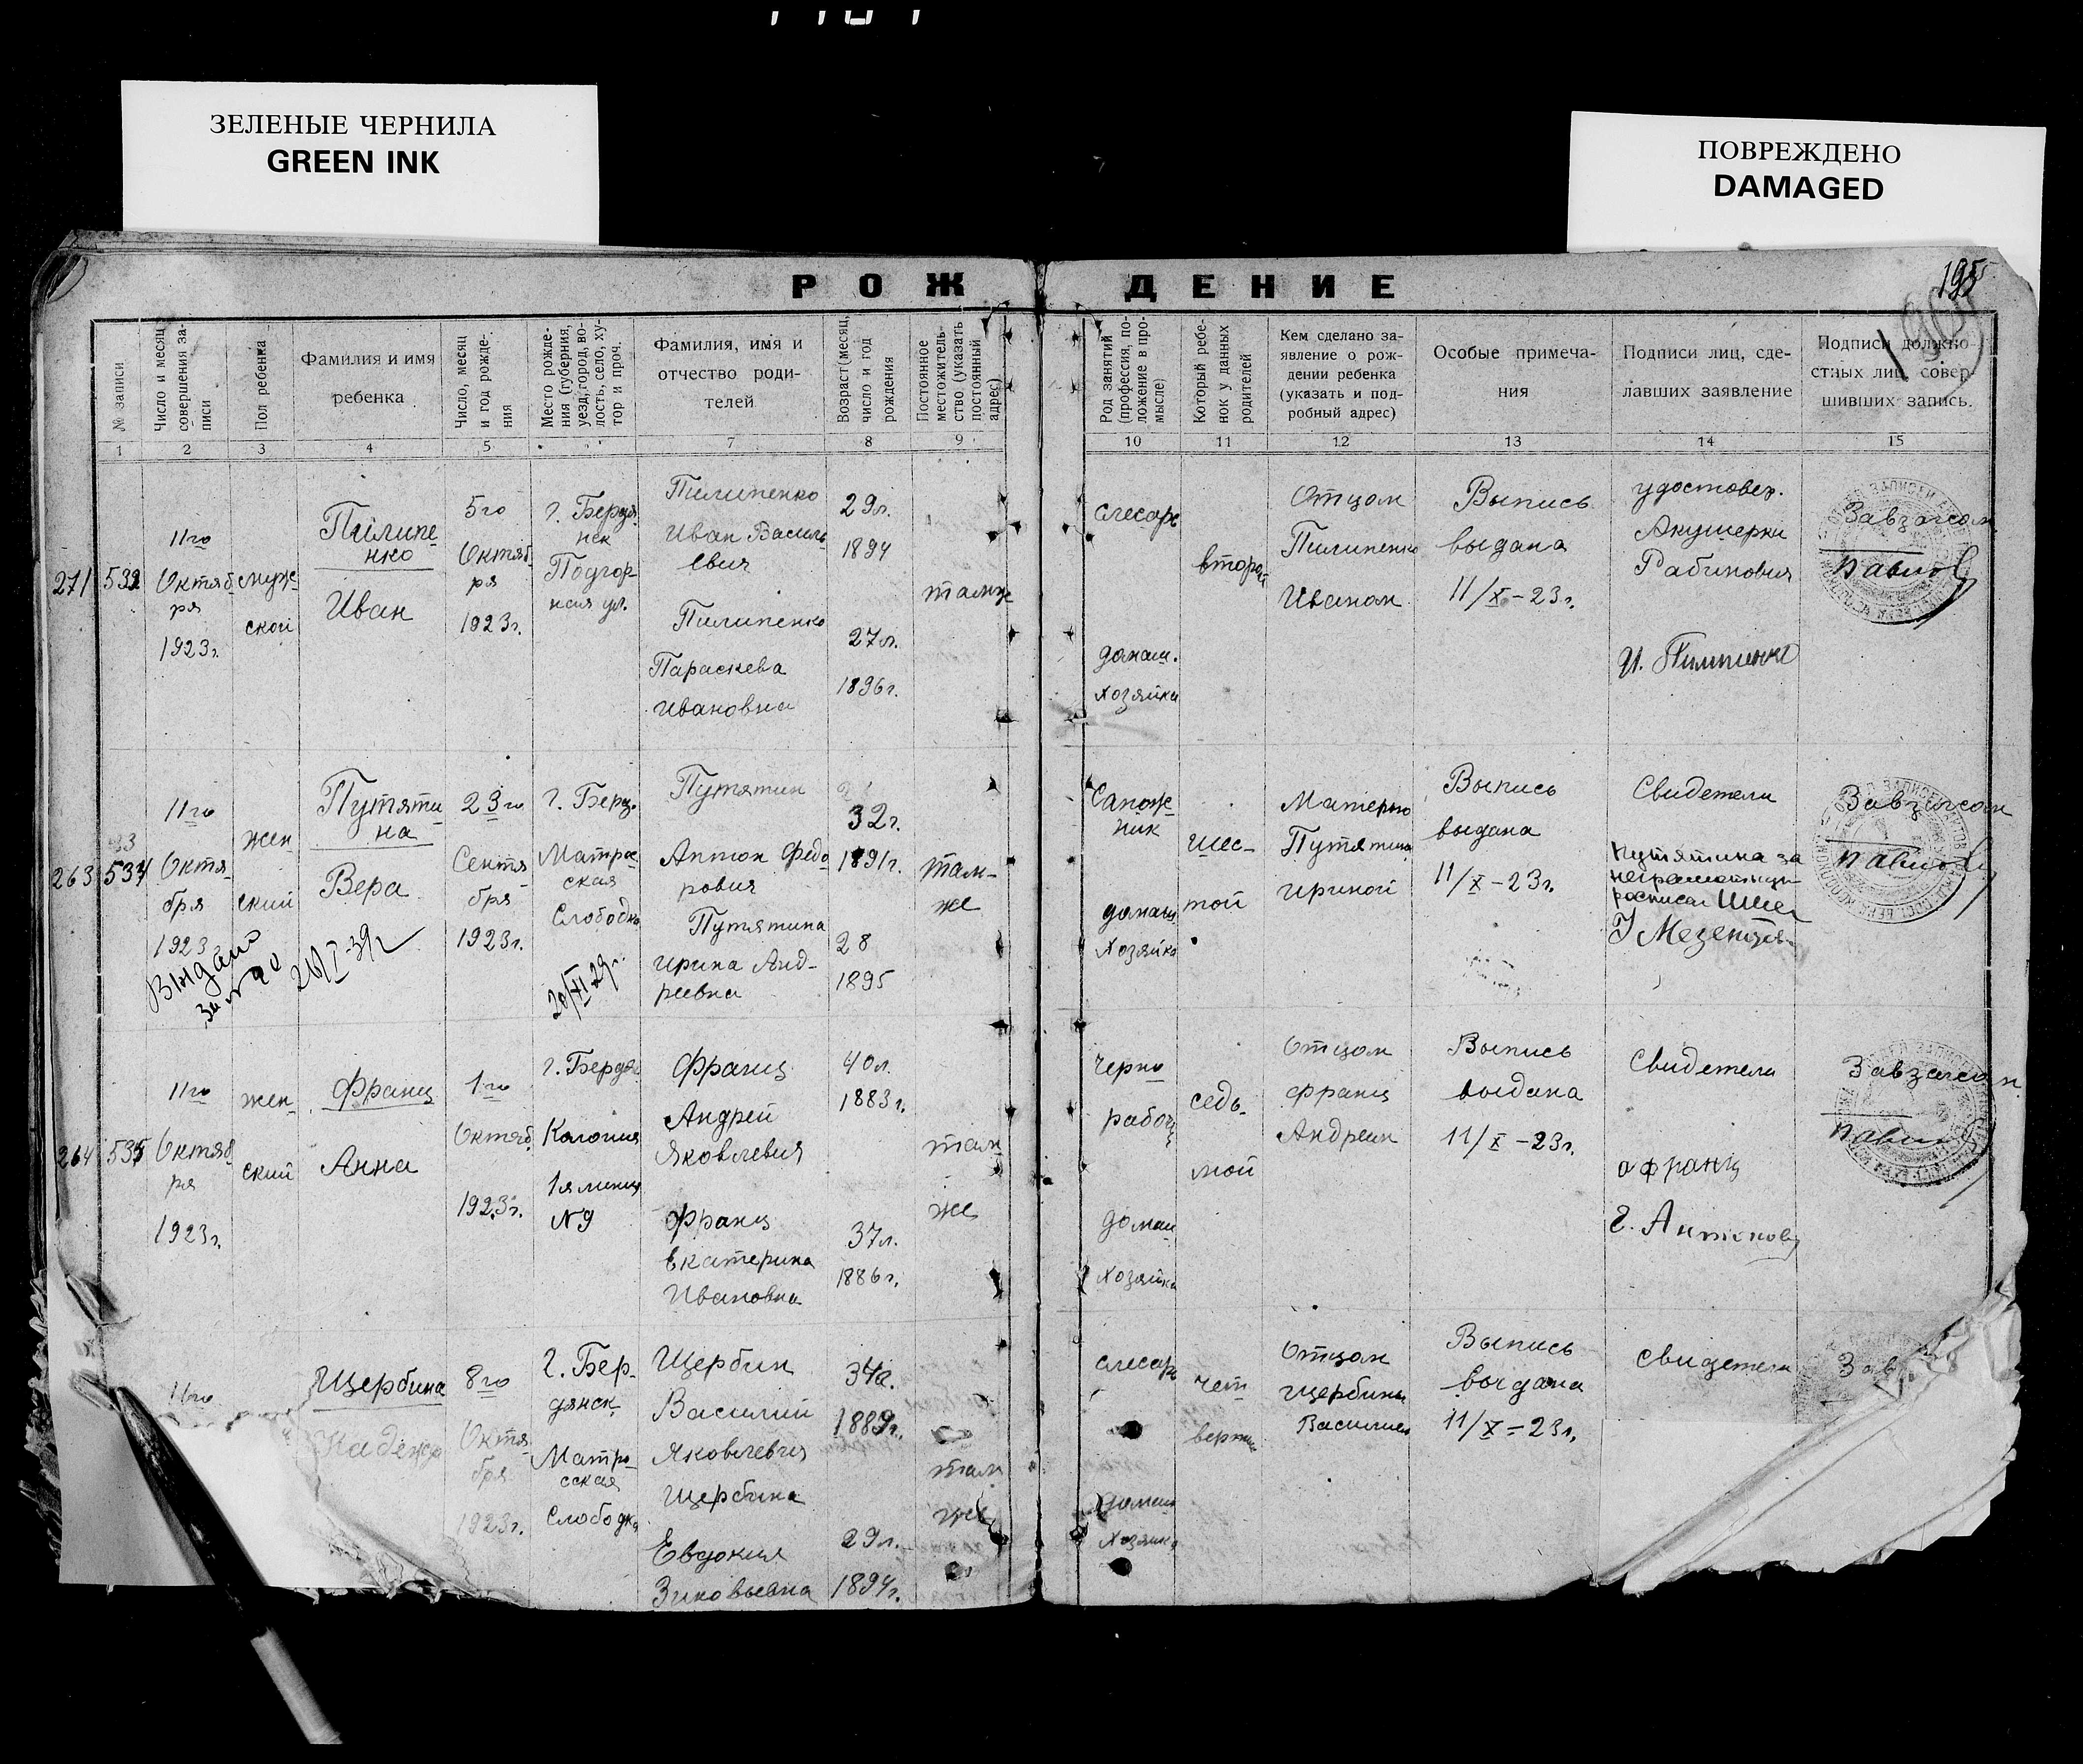 ЗЕЛЕНЫЕ ЧЕРНИЛА
GREEN INK
ПОВРЕЖДЕНО
DAMAGED
РОЖДЕНИЕ
195
№ записи
Число и месяц
совершения за-
писи
Пол ребенка
Фамилия и имя
ребенка
Число, месяц
и год рожде-
ния
Место рожде-
ния (губерния,
уезд, город, во-
лость, село, ху-
тор и проч.
Фамилия, имя и
отчество роди-
телей
Возраст (месяц,
число и год
рождения
Постоянное
местожитель-
ство (указать
постоянный
адрес)
Род занятий
(профессия, по-
ложение в про-
мысле)
Который ребе-
нок у данных
родителей
Кем сделано за-
явление о рож-
дении ребенка
(указать и под-
робный адрес)
Особые примеча-
ния
Подписи лиц, сде-
лавших заявление
Подписи должно-
стных лиц, совер-
шивших запись.
1 2 3 4 5 7 8 9 10 11 12 13 14 15
271
532
11го
Октяб
ря
1923г.
муж-
ской
Пилипе-
нко
Иван
5го
Октяб
ря
1923г.
г. Бердя
нск
Подгор-
ная ул.
Пилипенко
Иван Василь
евич
Пилипенко
Параскева
Ивановна
29л.
1894
27л.
1896г.
также
слесарь
домаш.
хозяйка
второй
Отцом
Пилипенко
Иваном
Выпись
выдана
11/X-23г.
удостовер.
Акушерки
Рабинович
И. Пилипенко
Завзагсом
Павлов
263
534
11го
Октя-
бря
1923
жен
ский
Путяти-
на
Вера
23го
Сентя
бря
1923г.
г. Берд.
Матро-
сская
Слободка
Путятин
Антон Федо
рович
Путятина
Ирина Анд-
реевна
32г.
1891г.
28
1895
там-
же
Выдано
за №90
20/XI-29г.
Сапож-
ник
домаш
хозяйка
шес-
той
Матерью
Путятина
Ириной
Выпись
выдана
11/X-23г.
Свидетели
Путятина за
неграмотную
росписал
Завзагсом
Павлов
264
535
11го
Октяб
ря
1923г.
жен-
ский
Франц
Анна
1го
Октяб.
1923г.
г. Бердя.
Колония
1я линия
№9
Франц
Андрей
Яковлевич
Франц
Екатерина
Ивановна
40л.
1883г.
37л.
1886г.
там
же
Черно
рабоч.
домаш
хозяйка
седь-
мой
Отцом
Франц
Андреем
Выпись
выдана
11/X-23г.
Свидетели
а франц
Завзагсом
Павлов
11го
Щербина
Надежда
8го
Октя-
бря
1923г.
г. Бер-
дянск
Матро-
сская
Слободка
Щербин
Василий
Яковлевич
Щербина
Евдокия
Зиновьевна
34г.
1889г.
29л.
1894г.
там
же
слесарь
домаш
хозяйка
чет
вертый
Отцом
Щербины
Василием
Выпись
выдана
11/X-23г.
Свидетели
Зав